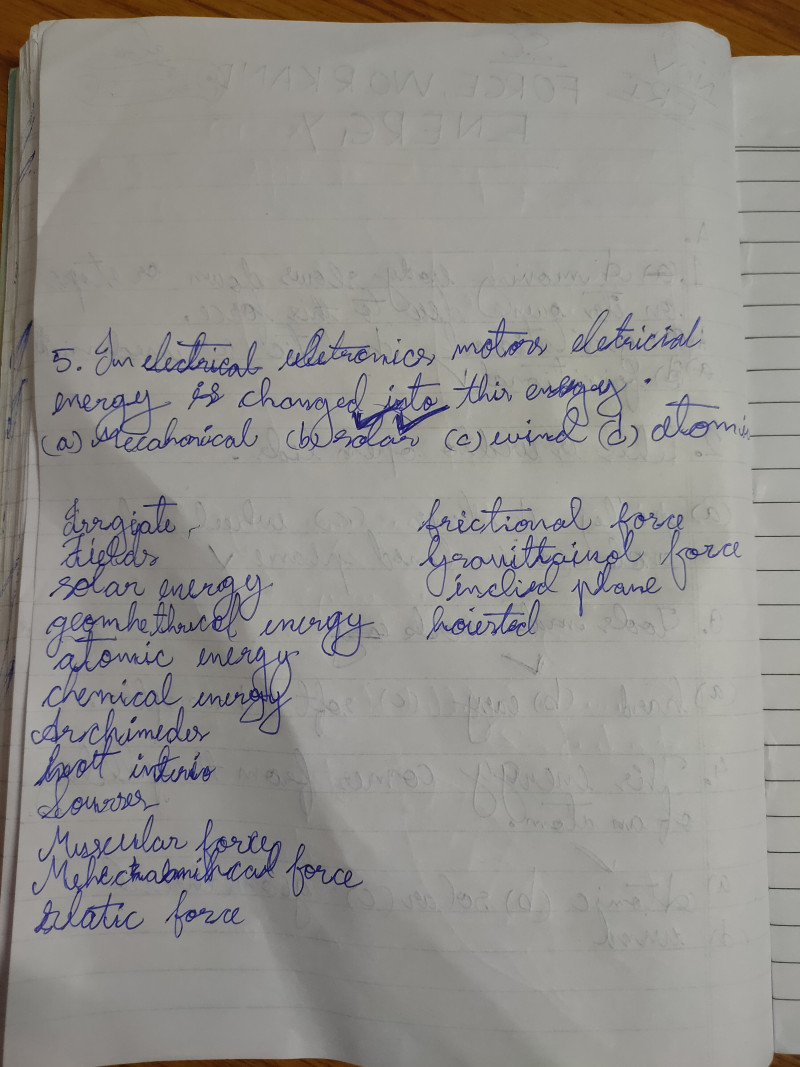 5. In electrical eletronics motors eletricial
energy is changed into this energy.
(a) Mecahonical (b) solar (c) wind (d) atomic
Irrgiate
Fields
solar energy
geomhethrical energy
atomic energy
chemical energy
Archimedes
interio
Sourses
Muscular force
force
static force
frictional force
Gravithainol force
inclied plane
hoiested